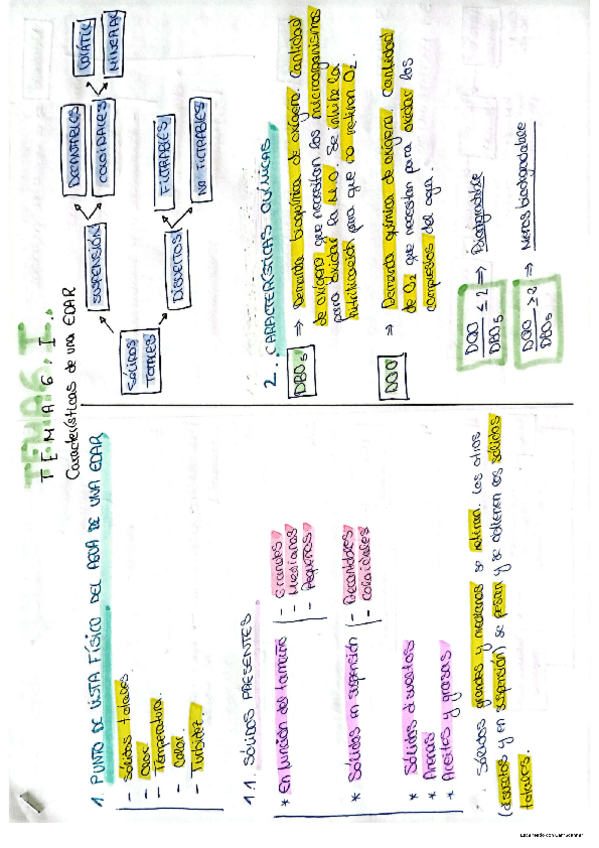 TEMA 6. I
TEMA 6. I
Características de una EDAR
1. PUNTO DE VISTA FÍSICO DEL AGUA DE UNA EDAR
- Sólidos totales.
- Olor.
- Temperatura.
- Color.
- Turbidez.
1.1. SÓLIDOS PRESENTES
* En función del tamaño
- Grandes
- Medianos
- Pequeños
* Sólidos en suspensión
- Decantables
- Coloidales
* Sólidos disueltos
* Arenas
* Aceites y grasas
Sólidos grandes y medianos se retiran. Los otros
(disueltos y en suspensión) se pesan y se obtienen los sólidos
totales.
SÓLIDOS
TOTALES
SUSPENSIÓN
DISUELTOS
DECANTABLES
COLOIDALES
FILTRABLES
NO FILTRABLES
VOLÁTIL
MINERAL
2. CARACTERÍSTICAS QUÍMICAS
DBO5 ⇒ Demanda bioquímica de oxígeno. Cantidad
de oxígeno que necesitan los microorganismos
para oxidar la M.O. Se inhibe la
nitrificación para que no retiren O2.
DQO ⇒ Demanda química de oxígeno. Cantidad
de O2 que necesitan para oxidar los
compuestos del agua.
DQO / DBO5 ≤ 2 ⇒ Biodegradable
DQO / DBO5 ≥ 2 ⇒ Menos biodegradable
Escaneado con CamScanner